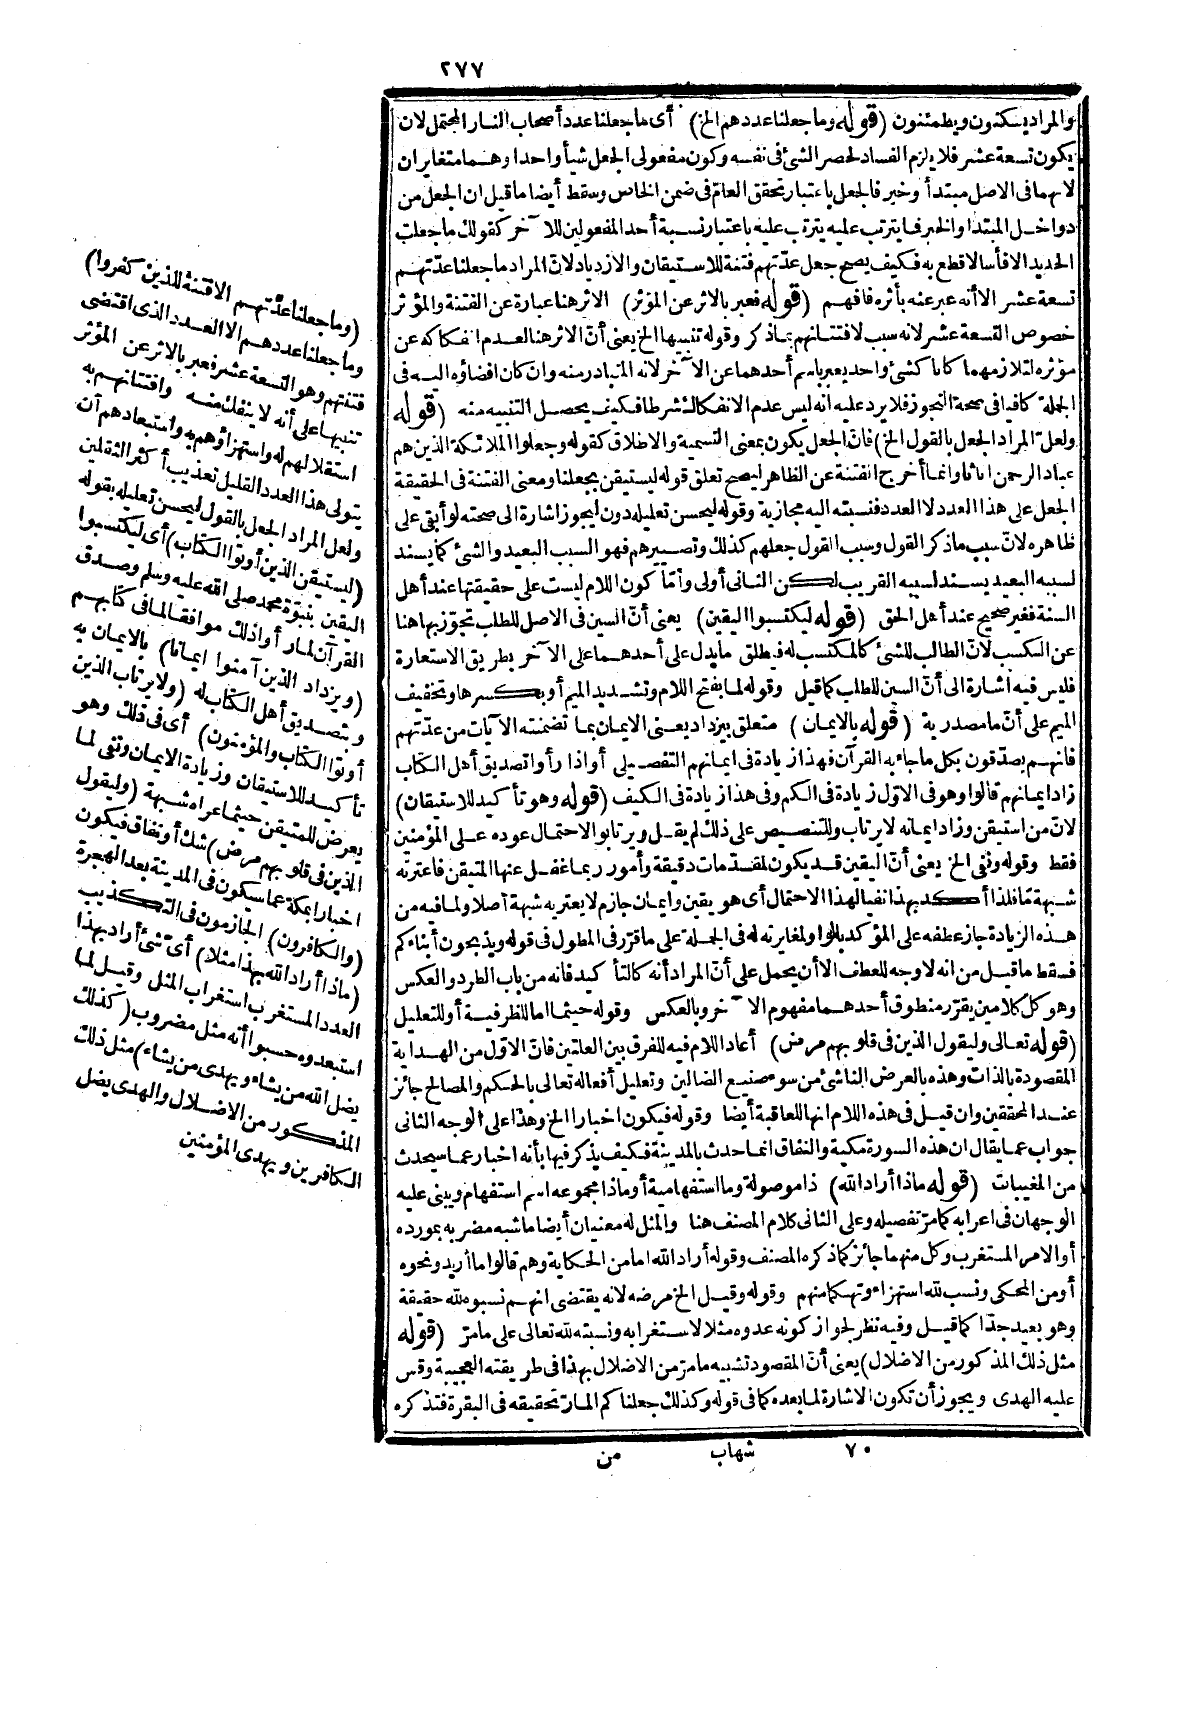 ٢٧٧
والمراد يسكنون ويطمئنون (قوله وما جعلنا عددهم الخ) أى ما جعلنا عدد أصحاب النار المحتمل لان
يكون تسعة عشر فلا يلزم الفساد لحصر الشئ فى نفسه وكون مفعولى الجعل شيأ واحدا وهما متغايران
لانهما فى الاصل مبتدأ وخبر فالجعل باعتبار تحقق العام فى ضمن الخاص وسقط أيضا ما قيل ان الجعل من
دواخل المبتدا والخبر فما يترتب عليه يترتب عليه باعتبار نسبة أحد المفعولين للآخر كقولك ما جعلت
الحديد الا فأسا لاقطع به فكيف يصح جعل عدّتهم فتنة للاستيقان والازدياد لانّ المراد ما جعلنا عدّتهم
تسعة عشر الا أنه عبر عنه بأثره فافهم (قوله فعبر بالاثر عن المؤثر) الاثر هنا عبارة عن الفتنة والمؤثر
خصوص التسعة عشر لانه سبب لافتتانهم بما ذكر وقوله تنبيها الخ يعنى أنّ الاثر هنا لعدم انفكاكه عن
مؤثره لتلازمهما كانا كشئ واحد يعبر باسم أحدهما عن الآخر لانه المتبادر منه وان كان افضاؤه اليه فى
الجملة كافيا فى صحة التجوز فلا يرد عليه انه ليس عدم الانفكاك شرطا فكيف يحصل التنبيه منه (قوله
ولعل المراد الجعل بالقول الخ) فانّ الجعل يكون بمعنى التسمية والاطلاق كقوله وجعلوا الملائكة الذين هم
عباد الرحمن اناثا وانما أخرج الفتنة عن الظاهر ليصح تعلق قوله ليستيقن بجعلنا ومعنى الفتنة فى الحقيقة
الجعل على هذا العدد لا العدد فنسبته اليه مجازية وقوله ليحسن تعليله دون ليجوز اشارة الى صحته لو أبقى على
ظاهره لانّ سبب ما ذكر القول وسبب القول جعلهم كذلك وتصييرهم فهو السبب البعيد والشئ كما يسند
لسببه البعيد يسند لسببه القريب لكن الثانى أولى وأمّا كون اللام ليست على حقيقتها عند أهل
السنة فغير صحيح عند أهل الحق (قوله ليكتسبوا اليقين) يعنى أنّ السين فى الاصل للطلب تجوّز بها هنا
عن الكسب لانّ الطالب للشئ كالمكتسب له فيطلق ما يدل على أحدهما على الآخر بطريق الاستعارة
فليس فيه اشارة الى أنّ السين للطلب كما قيل وقوله لما بفتح اللام وتشديد الميم أو بكسرها وتخفيف
الميم على أنّ ما مصدرية (قوله بالايمان) متعلق بيزداد يعنى الايمان بما تضمنته الآيات من عدّتهم
فانهم يصدّقون بكل ما جاء به القرآن فهذا زيادة فى ايمانهم التفصيلى أو اذا رأوا تصديق أهل الكتاب
زاد ايمانهم قالوا وهو فى الاوّل زيادة فى الكم وفى هذا زيادة فى الكيف (قوله وهو تأكيد للاستيقان)
لانّ من استيقن وزاد ايمانه لا يرتاب وللتنصيص على ذلك لم يقل ويرتابوا لاحتمال عوده على المؤمنين
فقط وقوله ونفى الخ يعنى أنّ اليقين قد يكون لمقدّمات دقيقة وأمور ربما غفل عنها المتيقن فاعترته
شبهة مّا فلذا أكد بهذا نفيا لهذا الاحتمال أى هو يقين وايمان جازم لا يعتريه شبهة أصلا ولما فيه من
هذه الزيادة جاز عطفه على المؤكد بالواو لمغايرته له فى الجملة على ما قرّر فى المطول فى قوله ويذبحون أبناءكم
فسقط ما قيل من انه لا وجه للعطف الا أن يحمل على أنّ المراد أنه كالتأكيد فانه من باب الطرد والعكس
وهو كل كلامين يقرّر منطوق أحدهما مفهوم الآخر وبالعكس وقوله حيثما اما للظرفية أو للتعليل
(قوله تعالى وليقول الذين فى قلوبهم مرض) أعاد اللام فيه للفرق بين العلتين فانّ الاوّل من الهداية
المقصودة بالذات وهذه بالعرض الناشئ من سوء صنيع الضالين وتعليل أفعاله تعالى بالحكم والمصالح جائز
عند المحققين وان قيل فى هذه اللام انها للعاقبة أيضا وقوله فيكون اخبارا الخ وهذا على الوجه الثانى
جواب عما يقال ان هذه السورة مكية والنفاق انما حدث بالمدينة فكيف يذكر فيها بأنه اخبار عما سيحدث
من المغيبات (قوله ماذا أراد الله) ذا موصولة وما استفهامية أو ماذا مجموعه اسم استفهام ويبنى عليه
الوجهان فى اعرابه كما مرّ تفصيله وعلى الثانى كلام المصنف هنا والمثل له معنيان أيضا ما شبه مضربه بمورده
أو الامر المستغرب وكل منهما جائز كما ذكره المصنف وقوله أراد الله اما من الحكاية وهم قالوا ما أريد ونحوه
أو من المحكى ونسب لله استهزاء وتهكما منهم وقوله وقيل الخ مرضه لانه يقتضى انهم نسبوه لله حقيقة
وهو بعيد جدّا كما قيل وفيه نظر لجواز كونه عدوه مثلا لاستغرابه ونسبته لله تعالى على ما مرّ (قوله
مثل ذلك المذكور من الاضلال) يعنى أنّ المقصود تشبيه ما مرّ من الاضلال بهذا فى طريقته العجيبة وقس
عليه الهدى ويجوز أن تكون الاشارة لما بعده كما فى قوله وكذلك جعلناكم المارّ تحقيقه فى البقرة فتذكره
(وما جعلنا عدّتهم الا فتنة للذين كفروا)
وما جعلنا عددهم الا العدد الذى اقتضى
فتنتهم وهو التسعة عشر فعبر بالاثر عن المؤثر
تنبيها على أنه لا ينفك منه وافتتانهم به
استقلالهم له واستهزاؤهم به واستبعادهم أن
يتولى هذا العدد القليل تعذيب أكثر الثقلين
ولعل المراد الجعل بالقول ليحسن تعليله بقوله
(ليستيقن الذين أوتوا الكتاب) أى ليكتسبوا
اليقين بنبوّة محمد صلى الله عليه وسلم وصدق
القرآن لما رأوا ذلك موافقا لما فى كتابهم
(ويزداد الذين آمنوا ايمانا) بالايمان به
وبتصديق أهل الكتاب له (ولا يرتاب الذين
أوتوا الكتاب والمؤمنون) أى فى ذلك وهو
تأكيد للاستيقان وزيادة الايمان ونفى لما
يعرض للمتيقن حيثما عراه شبهة (وليقول
الذين فى قلوبهم مرض) شك أو نفاق فيكون
اخبارا بمكة عما سيكون فى المدينة بعد الهجرة
(والكافرون) الجازمون فى التكذيب
(ماذا أراد الله بهذا مثلا) أى شئ أراد بهذا
العدد المستغرب استغراب المثل وقيل لما
استبعدوه حسبوا أنه مثل مضروب (كذلك
يضل الله من يشاء ويهدى من يشاء) مثل ذلك
المذكور من الاضلال والهدى يضل
الكافرين ويهدى المؤمنين
٧٠ شهاب من